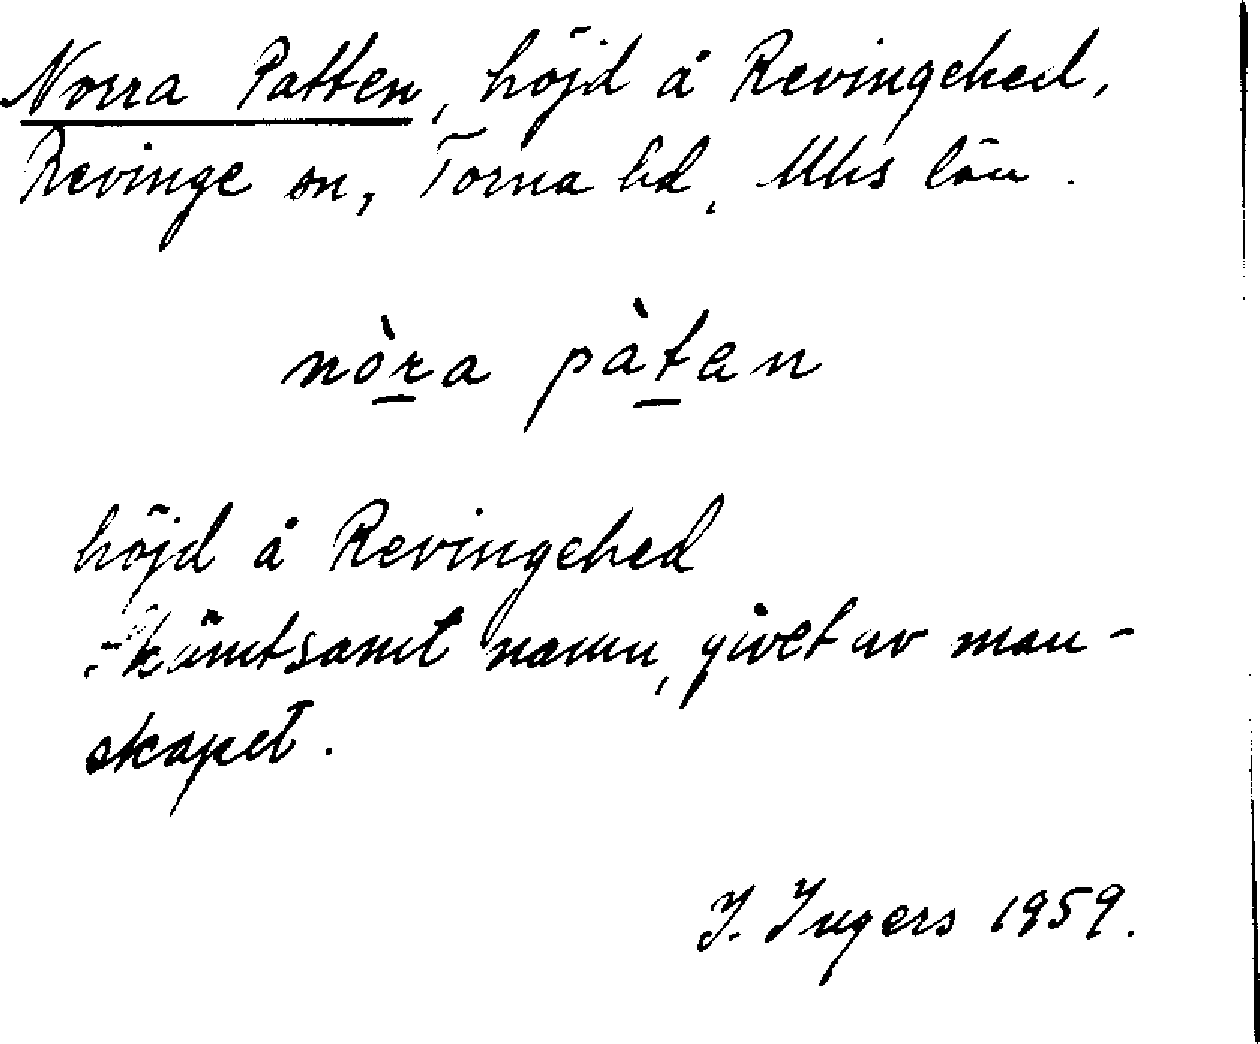 Norra Patten, höjd å Revingehed,
Revinge sn, Torna hd, Mhs län.
nòra pàtan
höjd å Revingehed
Skämtsamt namn, givet av man-
skapet.
I. Ingers 1959.